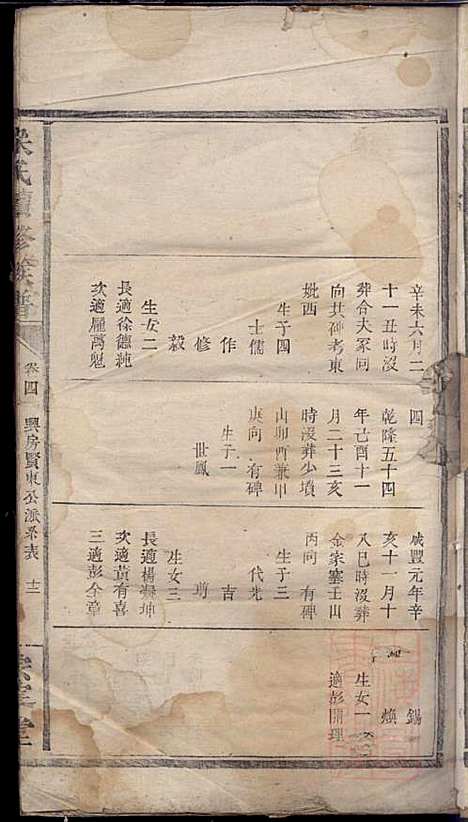 辛未六月二
十一丑時沒
葬合大冢同
向共碑考東
妣西
生子四
士儒
作
修
毅
生女二
長適徐德純
次適羅萬魁
四
乾隆五十四
年己酉十一
月二十三亥
時沒葬少墳
山卯酉兼甲
庚向 有碑
生子一
世鳳
咸豐元年辛
亥十一月十
八巳時沒葬
金家塞壬山
丙向 有碑
生子三
代先
吉
剪
生女三
長適楊興坤
次適黃有喜
三適彭全章
錫
煥
生女一
適彭開理
氏續修族譜
卷四
興房賢東公派系表
十二
堂